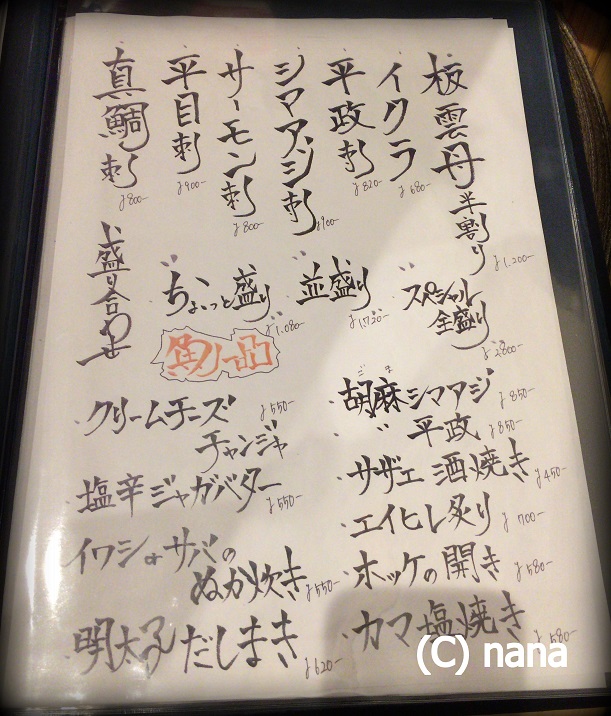 板雲丹 半割り ¥1,200-
イクラ ¥680-
平政刺 ¥820-
シマアジ刺 ¥900-
サーモン刺 ¥800-
平目刺 ¥900-
真鯛刺 ¥800-
盛り合わせ
ちょいっと盛り ¥1,080-
並盛り ¥1,720-
スペシャル
全盛り ¥2,800-
魚り一品
クリームチーズ
チャンジャ ¥550-
塩辛ジャガバター ¥550-
イワシorサバの
ぬか炊き ¥550-
明太子だしまき ¥620-
ごま
胡麻シマアジ ¥850-
〃 平政 ¥850-
サザエ酒焼き ¥450-
エイヒレ炙り ¥700-
ホッケの開き ¥580-
カマ塩焼き ¥580-
(C) nana